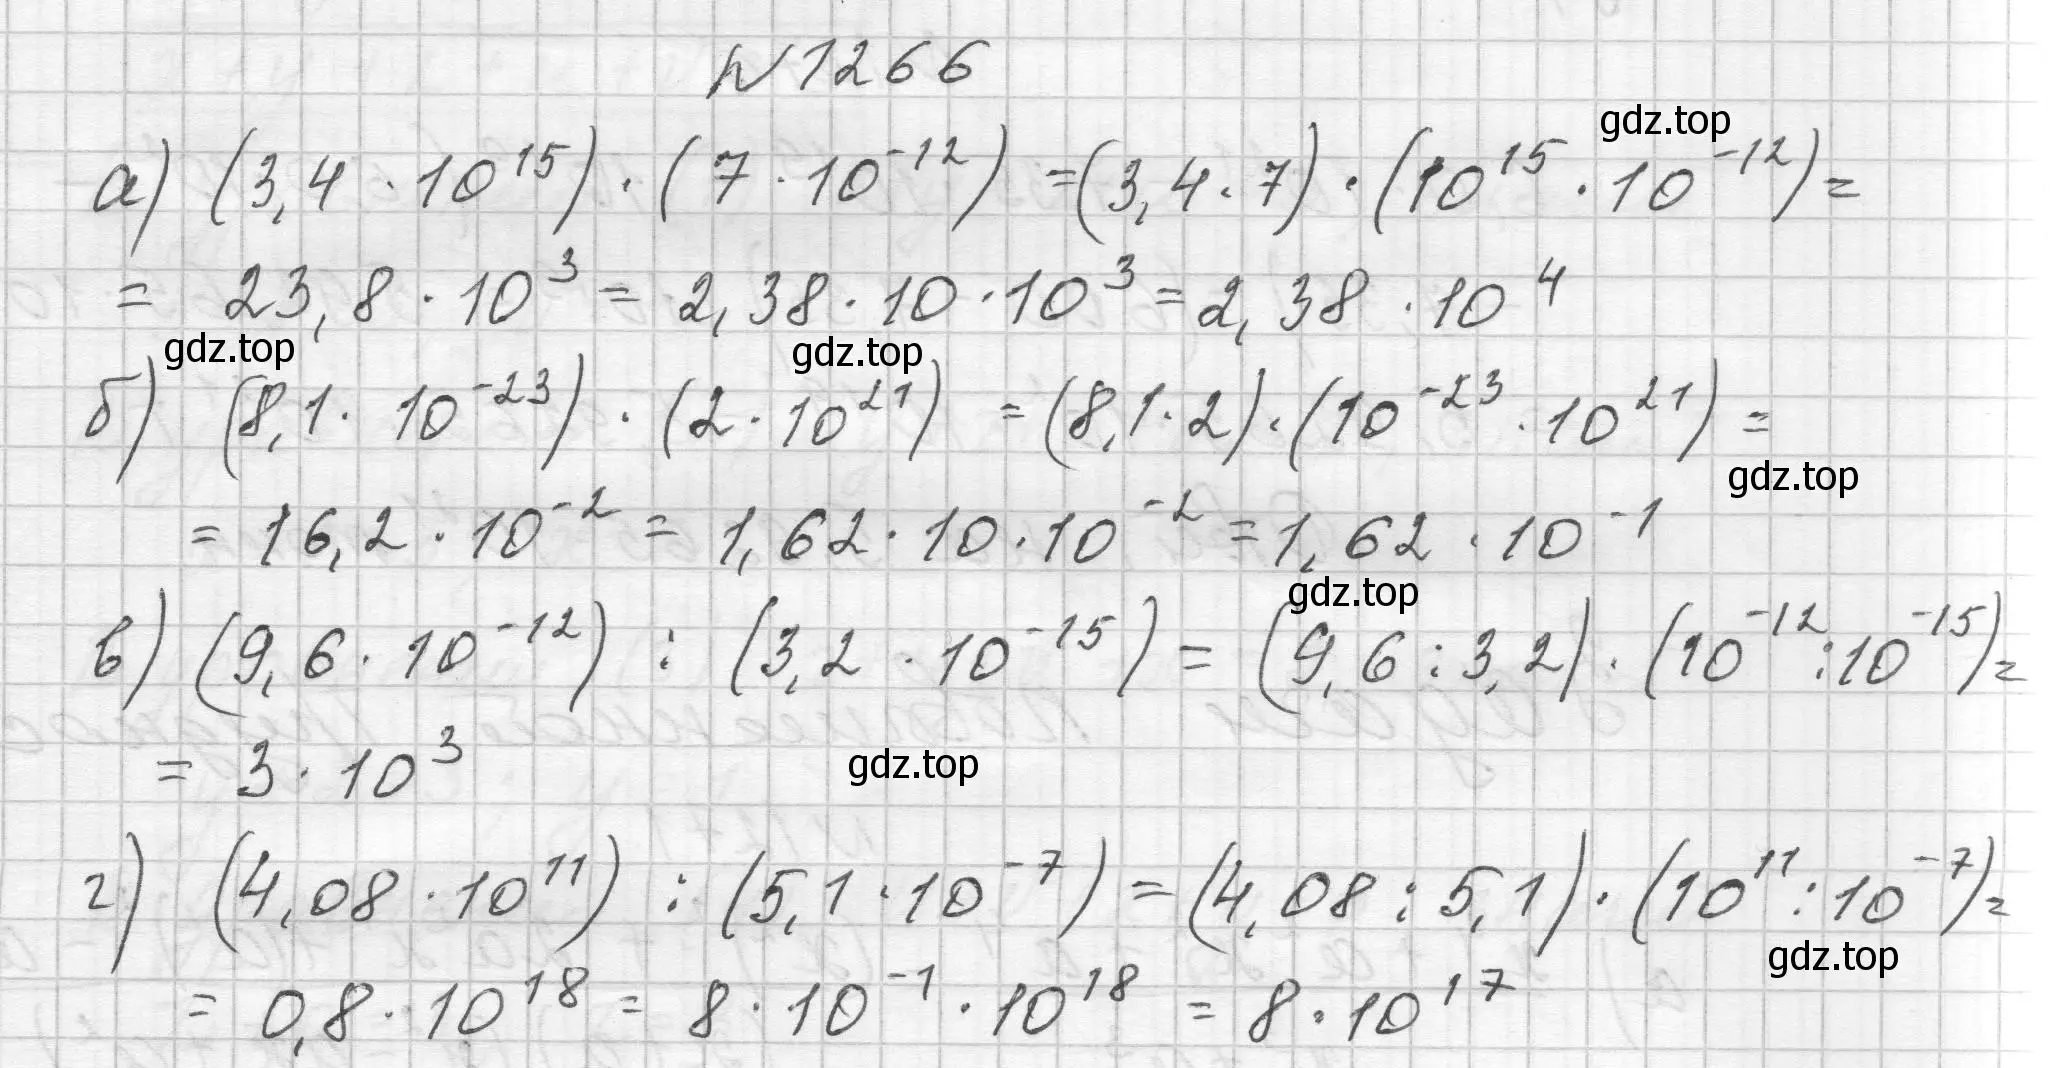 № 1266
gdz.top
а) (3,4 · 10¹⁵) · (7 · 10⁻¹²) = (3,4 · 7) · (10¹⁵ · 10⁻¹²) =
= 23,8 · 10³ = 2,38 · 10 · 10³ = 2,38 · 10⁴
gdz.top gdz.top
б) (8,1 · 10⁻²³) · (2 · 10²¹) = (8,1 · 2) · (10⁻²³ · 10²¹) =
gdz.top
= 16,2 · 10⁻² = 1,62 · 10 · 10⁻² = 1,62 · 10⁻¹
gdz.top
в) (9,6 · 10⁻¹²) : (3,2 · 10⁻¹⁵) = (9,6 : 3,2) · (10⁻¹² : 10⁻¹⁵) =
= 3 · 10³
gdz.top
г) (4,08 · 10¹¹) : (5,1 · 10⁻⁷) = (4,08 : 5,1) · (10¹¹ : 10⁻⁷) =
gdz.top
= 0,8 · 10¹⁸ = 8 · 10⁻¹ · 10¹⁸ = 8 · 10¹⁷